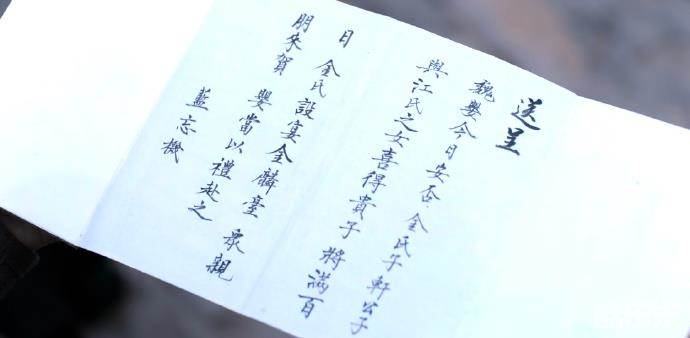 送呈
魏嬰今日安否 金氏子軒公子
與江氏之女喜得貴子 將滿百
日 金氏設宴金麟臺 眾親
朋來賀 嬰當以禮赴之
藍忘機